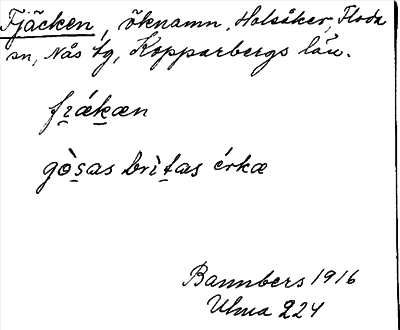 Fjäcken, öknamn, Holsåker, Floda
sn, Nås tg, Kopparbergs län.
gò̱sas brìṯas érkæ
Bannbers 1916
Ulma 224